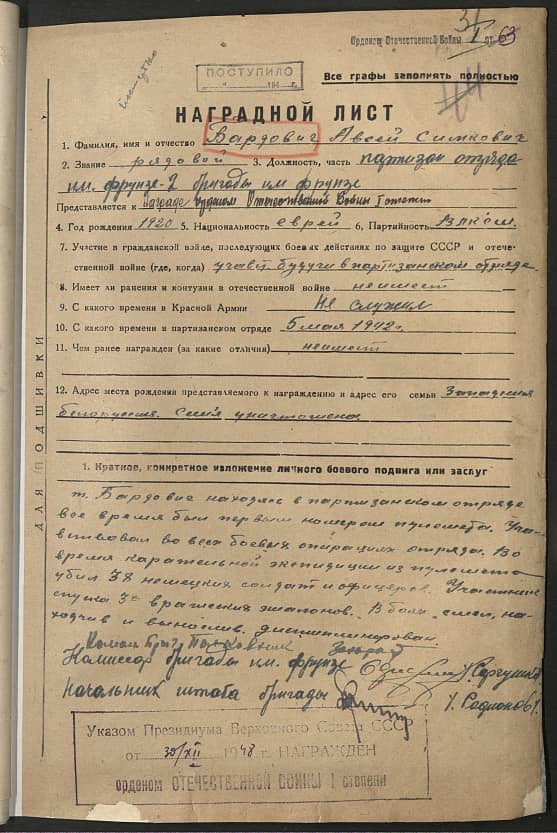 31
Орденом Отечественной Войны I ст. 63
ПОСТУПИЛО
194 г.
Все графы заполнять полностью
НАГРАДНОЙ ЛИСТ
1. Фамилия, имя и отчество Бардович Авсей Симкович
2. Звание рядовой 3. Должность, часть партизан отряда
им. Фрунзе-2 бригады им фрунзе
Представляется к награде орденом Отечественной Войны I степен
4. Год рождения 1920 5. Национальность еврей 6. Партийность ВЛКСМ.
7. Участие в гражданской войне, последующих боевых действиях по защите СССР и отече-
ственной войне (где, когда) участ. будучи в партизанском отряде.
8. Имеет ли ранения и контузии в отечественной войне неимеет
9. С какого времени в Красной Армии Не служил
10. С какого времени в партизанском отряде 5 мая 1942 г.
11. Чем ранее награжден (за какие отличия) неимеет
12. Адрес места рождения представляемого к награждению и адрес его семьи Западная
белоруссия. Семья уничтожена
ДЛЯ ПОДШИВКИ
1. Краткое, конкретное изложение личного боевого подвига или заслуг
т. Бардович находясь в партизанском отряде
все время был первым номером пулемета. Уча-
ствовал во всех боевых операциях отряда. Во
время карательной экспедиции из пулемета
убил 38 немецких солдат и офицеров. Участник
спуска 3х вражеских эшалонов. В боях смел, на-
ходчив и вынослив. дисциплинирован.
Коман. Бриг. Полковник
Комиссар бригады им. фрунзе
Начальник штаба бригады /. Родионов/.
Указом Президиума Верховного Совета СССР
от 30/XII 1948 г. НАГРАЖДЕН
орденом ОТЕЧЕСТВЕННОЙ ВОЙНЫ I степени